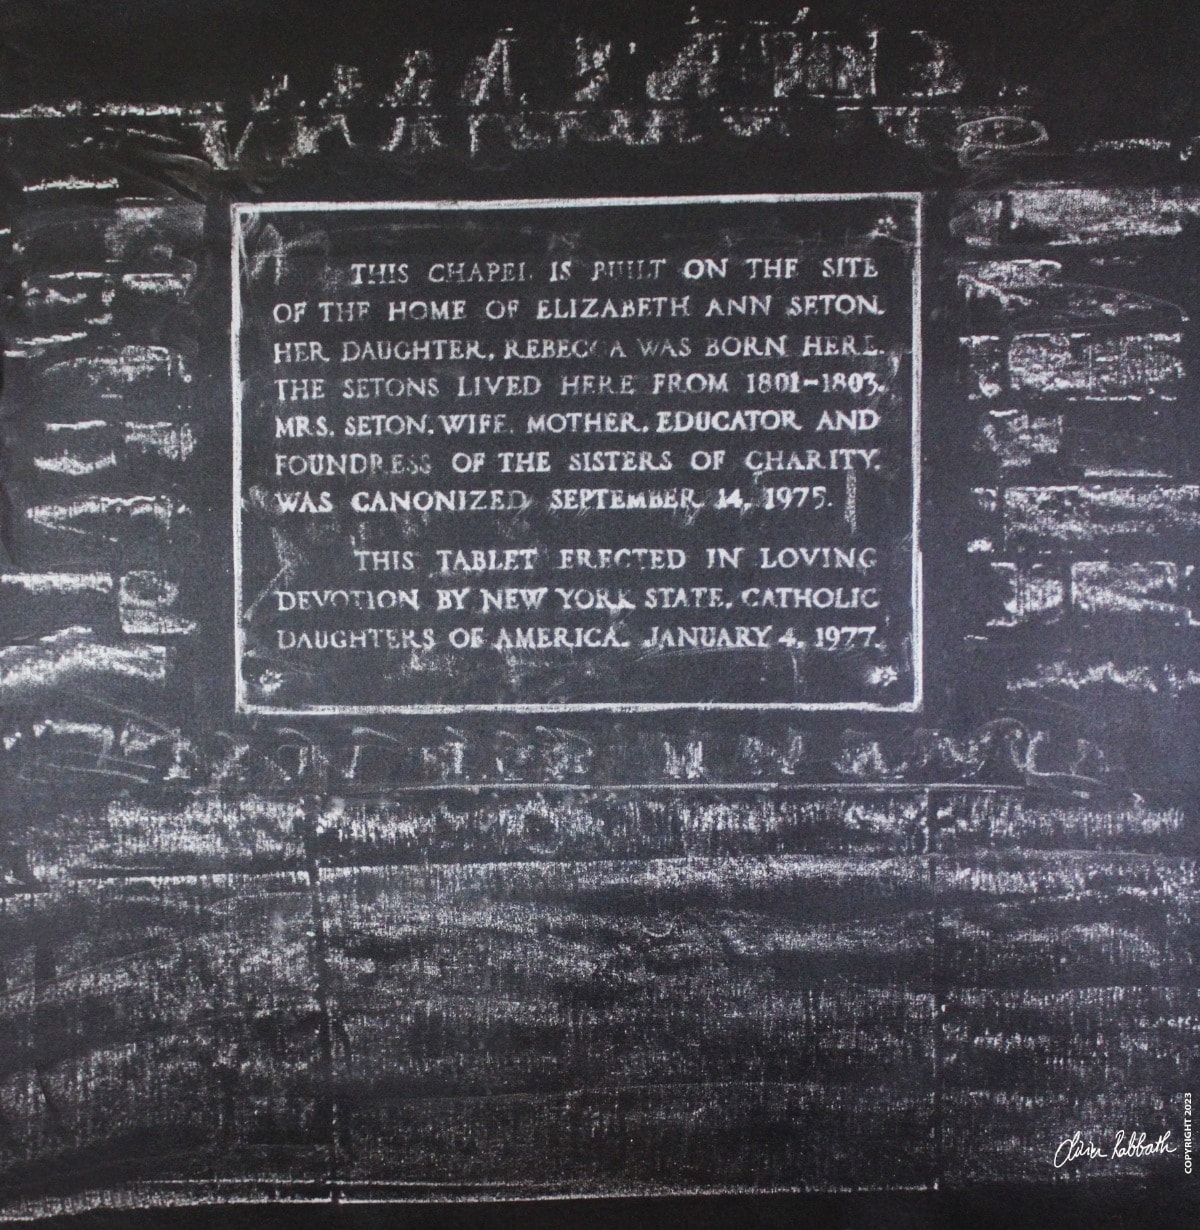 THIS CHAPEL IS BUILT ON THE SITE
OF THE HOME OF ELIZABETH ANN SETON.
HER DAUGHTER, REBECCA WAS BORN HERE.
THE SETONS LIVED HERE FROM 1801-1803.
MRS. SETON, WIFE, MOTHER, EDUCATOR AND
FOUNDRESS OF THE SISTERS OF CHARITY,
WAS CANONIZED SEPTEMBER 14, 1975.
THIS TABLET ERECTED IN LOVING
DEVOTION BY NEW YORK STATE, CATHOLIC
DAUGHTERS OF AMERICA. JANUARY 4, 1977.
Rabbath
COPYRIGHT 2023